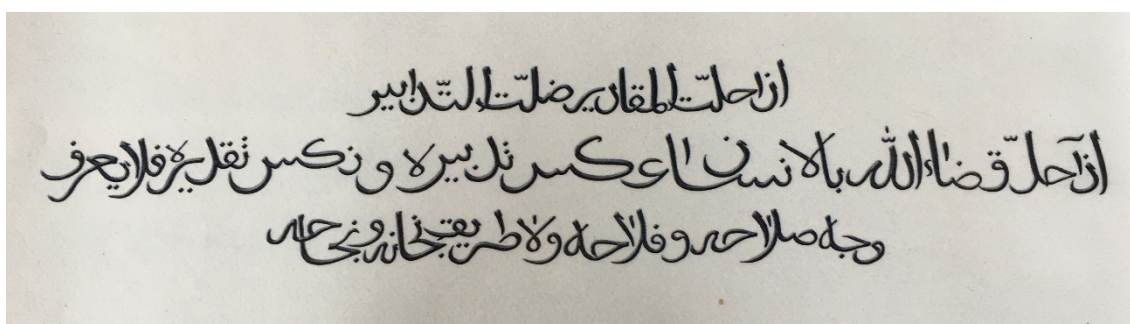 اذا حلّت المقادير ضلّت التّدابير
اذا حلّ قضاء الله بالانسان عكس تدبيره ونكس تقديره فلا يعرف
وجه صلاحه و فلاحه ولا طريق نجاته ونجاحه